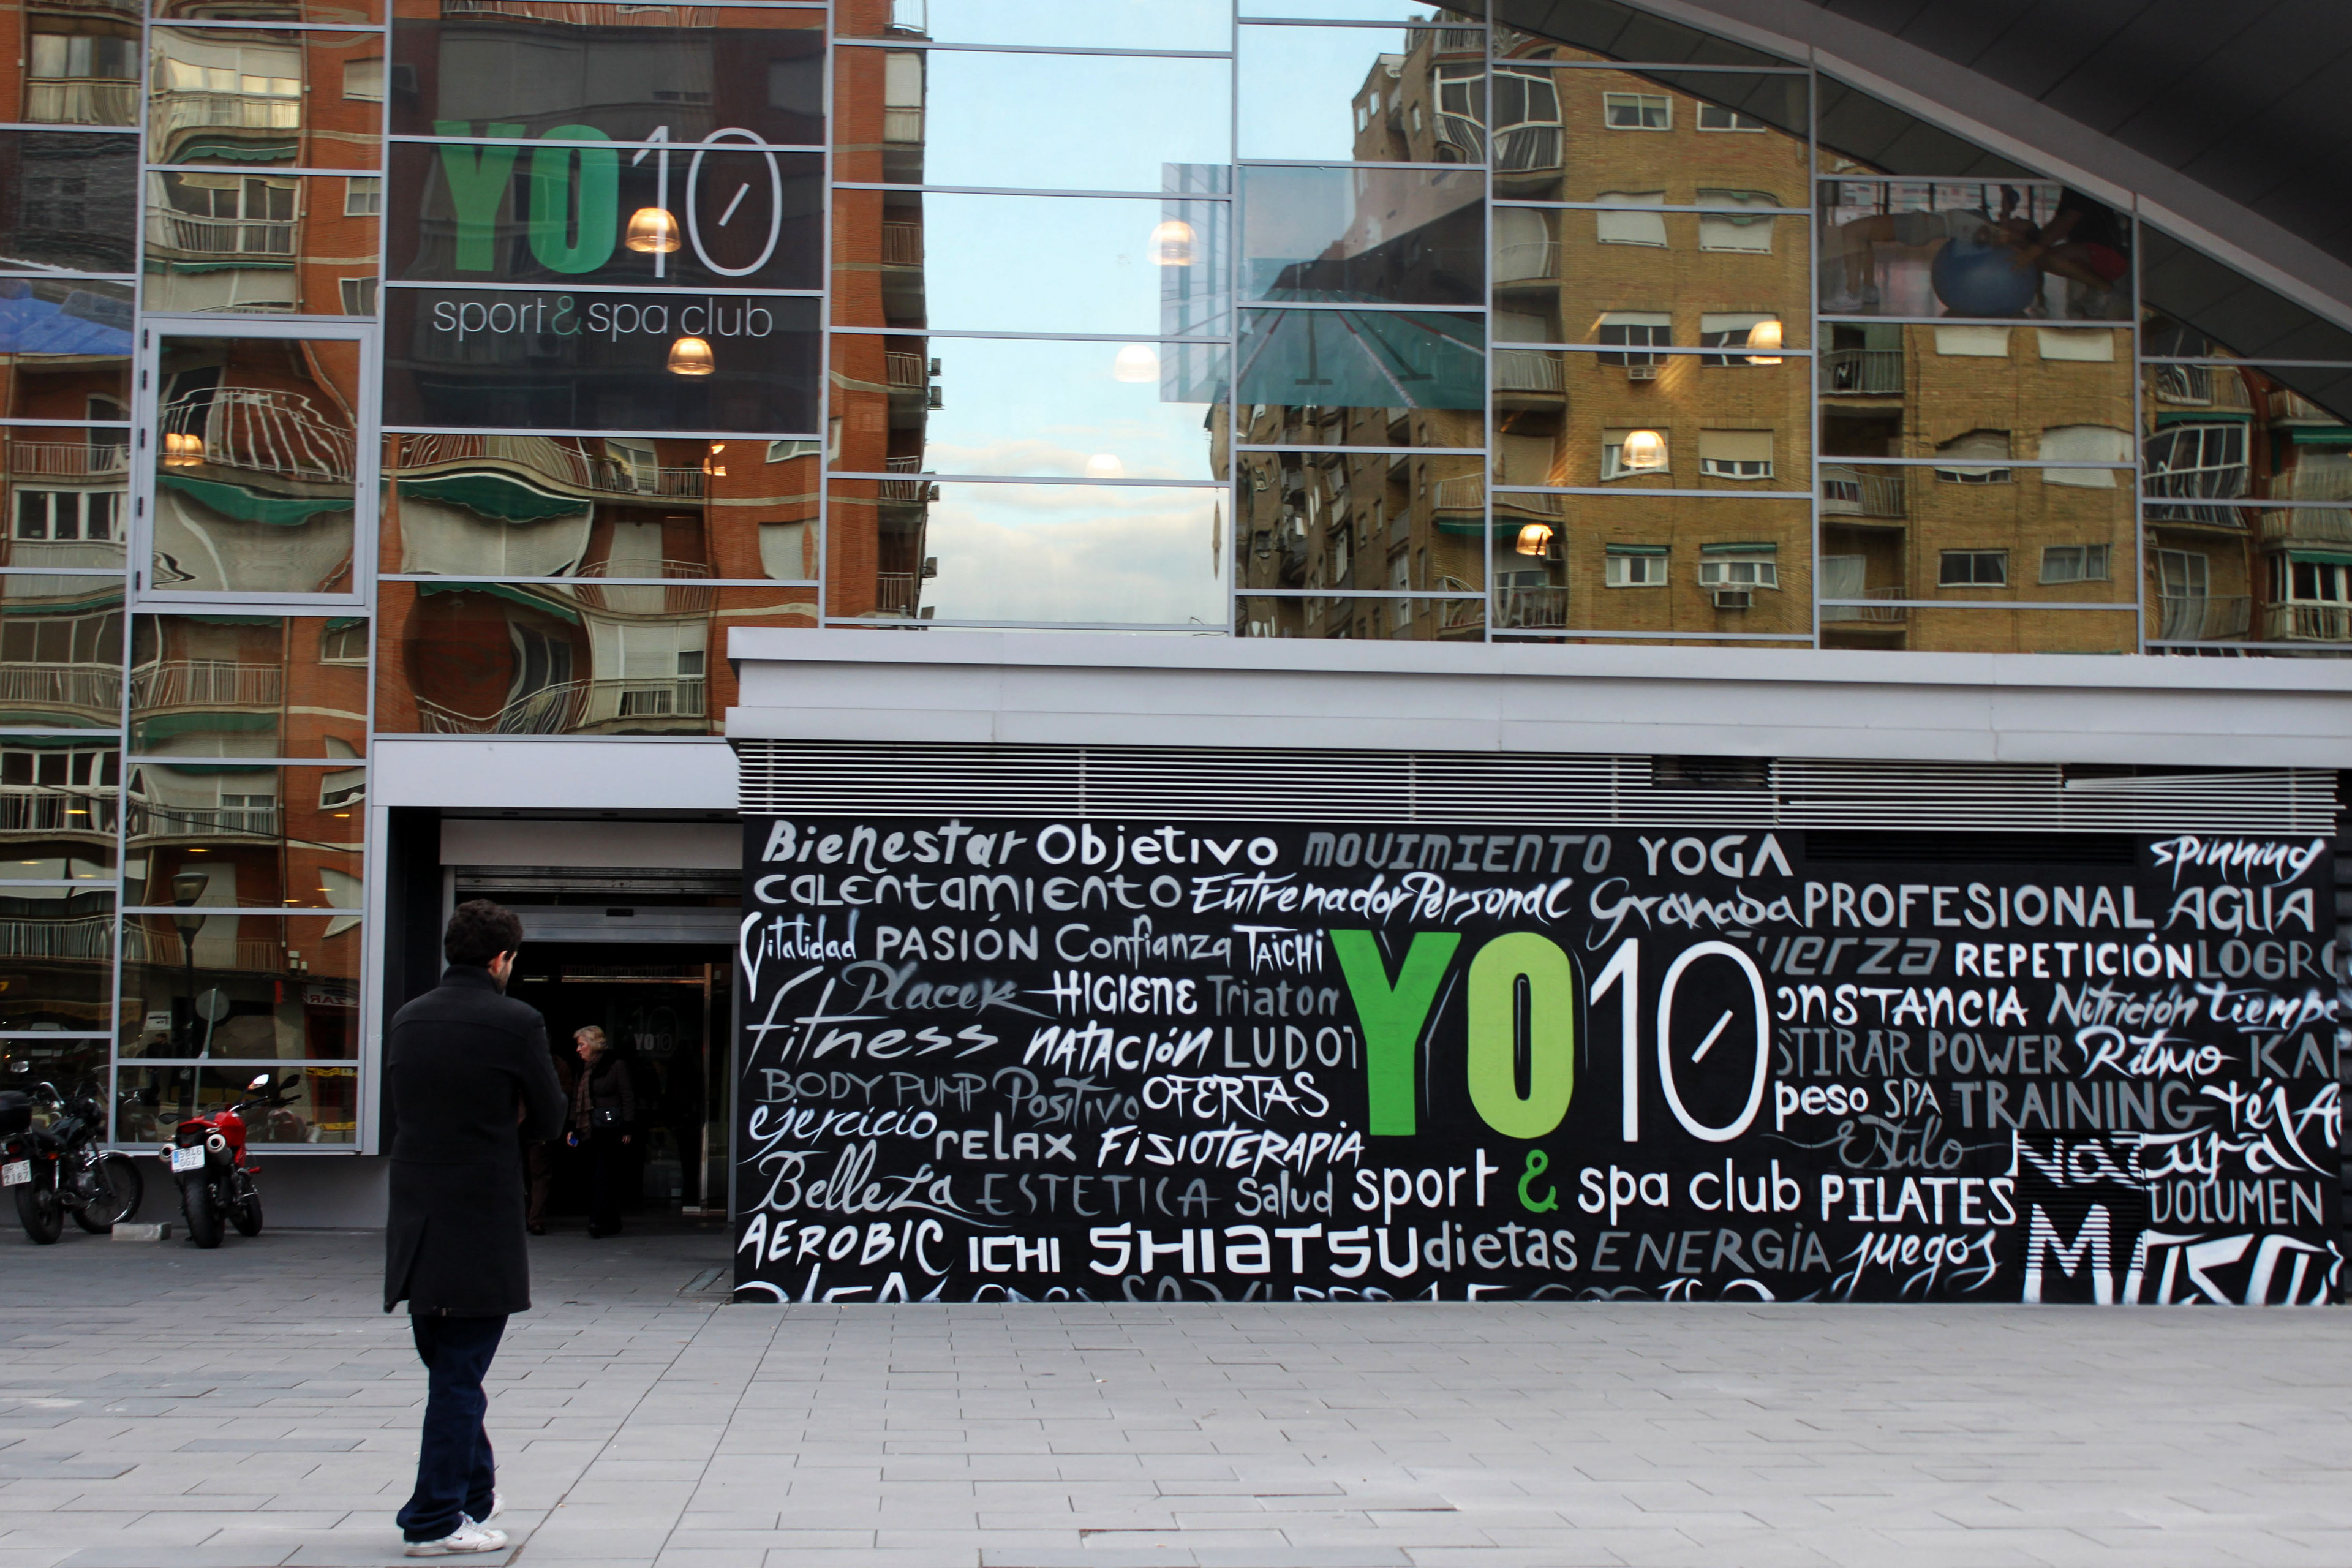 YO10
sport&spa club
Bienestar Objetivo MOVIMIENTO YOGA spinning
CALENTAMIENTO Entrenador Personal Granada PROFESIONAL AGUA
Vitalidad PASIÓN Confianza TAICHI YO10 REPETICIÓN
Placer HIGIENE Nutrición
Fitness NATACIÓN POWER Ritmo
BODY PUMP Positivo OFERTAS peso SPA TRAINING
ejercicio RELAX FISIOTERAPIA Estilo
Belleza ESTETICA Salud sport & spa club PILATES VOLUMEN
AEROBIC ICHI SHIATSU dietas ENERGÍA juegos
YO10